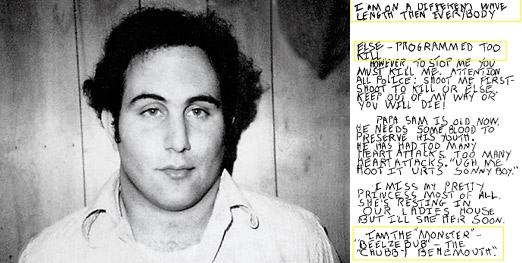 I AM ON A DIFFERENT WAVE
LENGTH THEN EVERYBODY
ELSE - PROGRAMMED TOO
KILL.
HOWEVER, TO STOP ME YOU
MUST KILL ME. ATTENTION
ALL POLICE: SHOOT ME FIRST-
SHOOT TO KILL OR ELSE.
KEEP OUT OF MY WAY OR
YOU WILL DIE!
PAPA SAM IS OLD NOW.
HE NEEDS SOME BLOOD TO
PRESERVE HIS YOUTH.
HE HAS HAD TOO MANY
HEART ATTACKS. TOO MANY
HEART ATTACKS. "UGH, ME
HOOT IT URTS SONNY BOY."
I MISS MY PRETTY
PRINCESS MOST OF ALL.
SHE'S RESTING IN
OUR LADIES HOUSE
BUT I'LL SEE HER SOON.
I AM THE "MONSTER" -
"BEELZEBUB" - THE
"CHUBBY BEHEMOUTH."